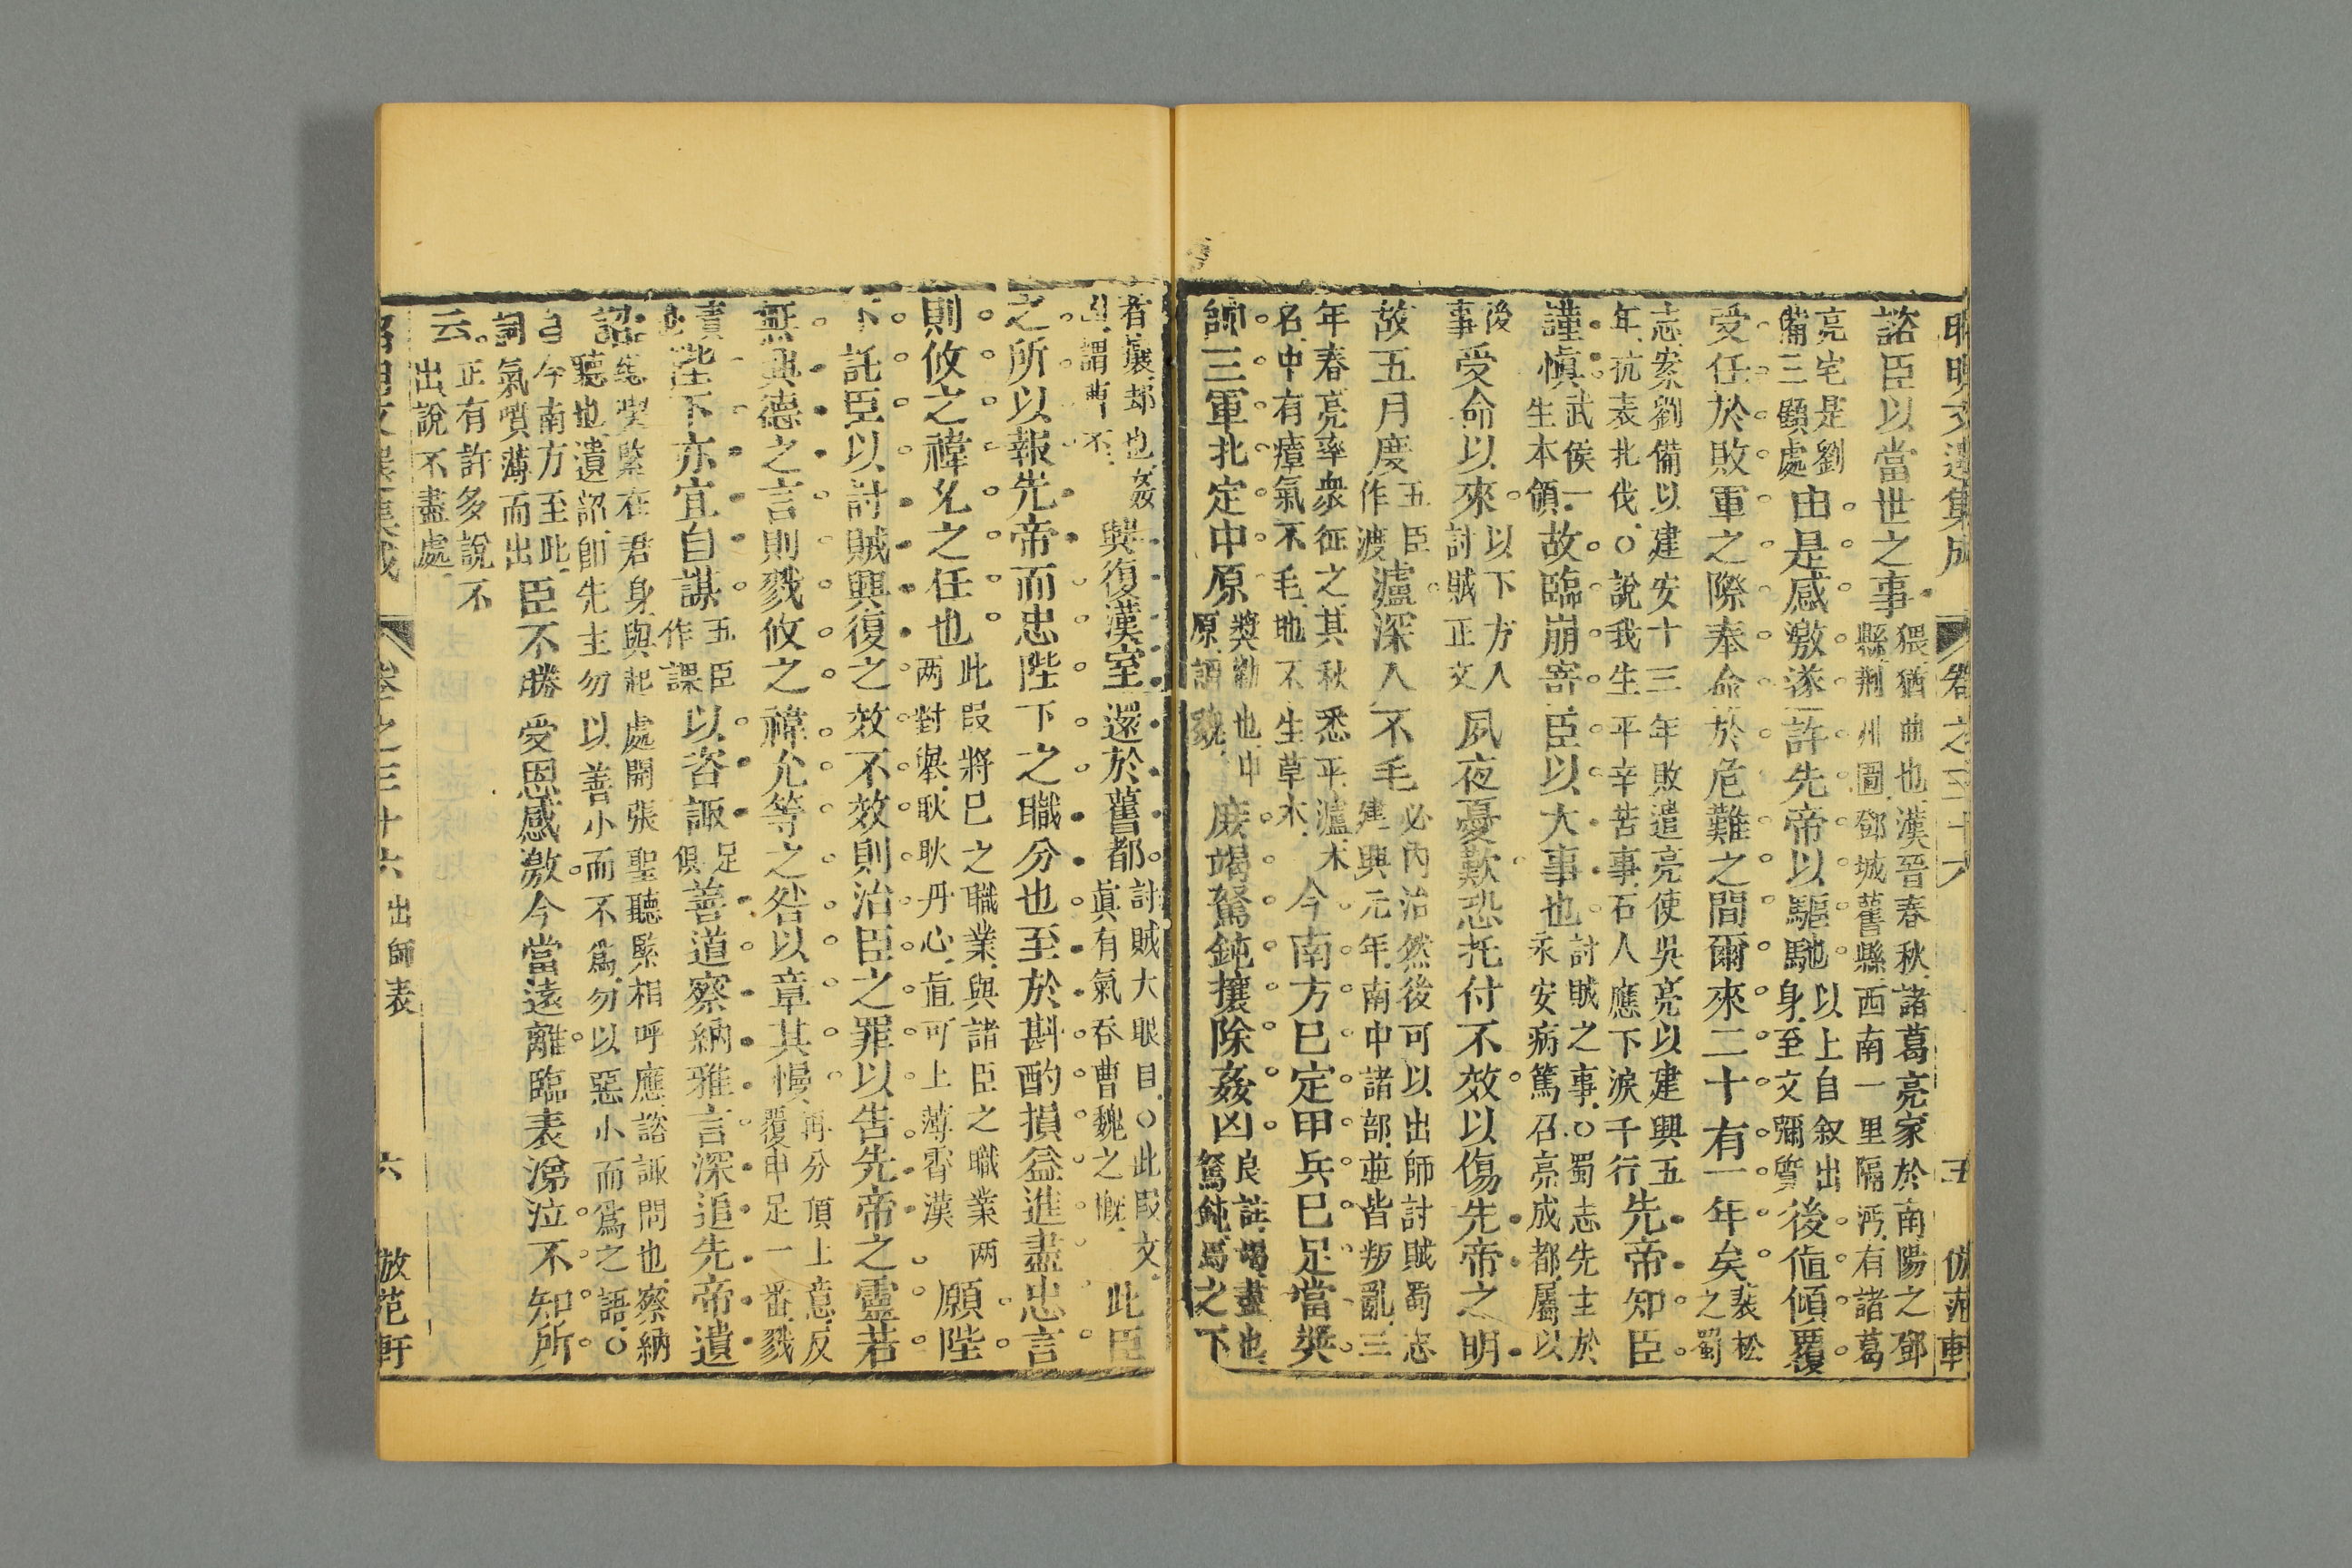 昭明文選集成 卷之三十六 五 倣范軒
諮臣以當世之事猥猶曲也漢晉春秋諸葛亮家於南陽之鄧縣荆州圖鄧城舊縣西南一里隔沔有諸葛
亮宅是劉備三顧處由是感激遂許先帝以驅馳以上自叙出身至文彌質後值傾覆
受任於敗軍之際奉命於危難之間爾來二十有一年矣裴松之蜀
志案劉備以建安十三年敗遣亮使吳亮以建興五年抗表北伐○說我生平辛苦事石人應下淚千行先帝知臣
謹慎武侯一生本領故臨崩寄臣以大事也討賊之事○蜀志先主於永安病篤召亮成都屬以
後事受命以來以下方人討賊正文夙夜憂歎恐托付不效以傷先帝之明
故五月度五臣作渡瀘深入不毛必內治然後可以出師討賊蜀志建興元年南中諸部並皆叛亂三
年春亮率衆征之其秋悉平瀘水名中有瘴氣不毛地不生草木今南方已定甲兵已足當奬
師三軍北定中原奬勸也中原謂魏庶竭駑鈍攘除姦凶良註竭盡也駑鈍馬之下
者攘却也姦凶謂曹丕興復漢室還於舊都討賊大眼目○此叚文真有氣吞曹魏之慨此臣
之所以報先帝而忠陛下之職分也至於斟酌損益進盡忠言
則攸之禕允之任也此叚將已之職業與諸臣之職業两两對舉耿耿丹心直可上薄霄漢願陛
下託臣以討賊興復之效不效則治臣之罪以告先帝之靈若
無興德之言則戮攸之禕允等之咎以章其慢再分頂上意反覆申足一番戮
責陛下亦宜自謀五臣作課以咨諏足俱善道察納雅言深追先帝遺
詔結在君身與起處開張聖聽緊相呼應諮諏問也察納聽也遺詔即先主勿以善小而不為勿以惡小而為之語○
今南方至此詞氣噴薄而出臣不勝受恩感激今當遠離臨表涕泣不知所
云正有許多說不出說不盡處
昭明文選集成 卷之三十六 出師表 六 倣范軒